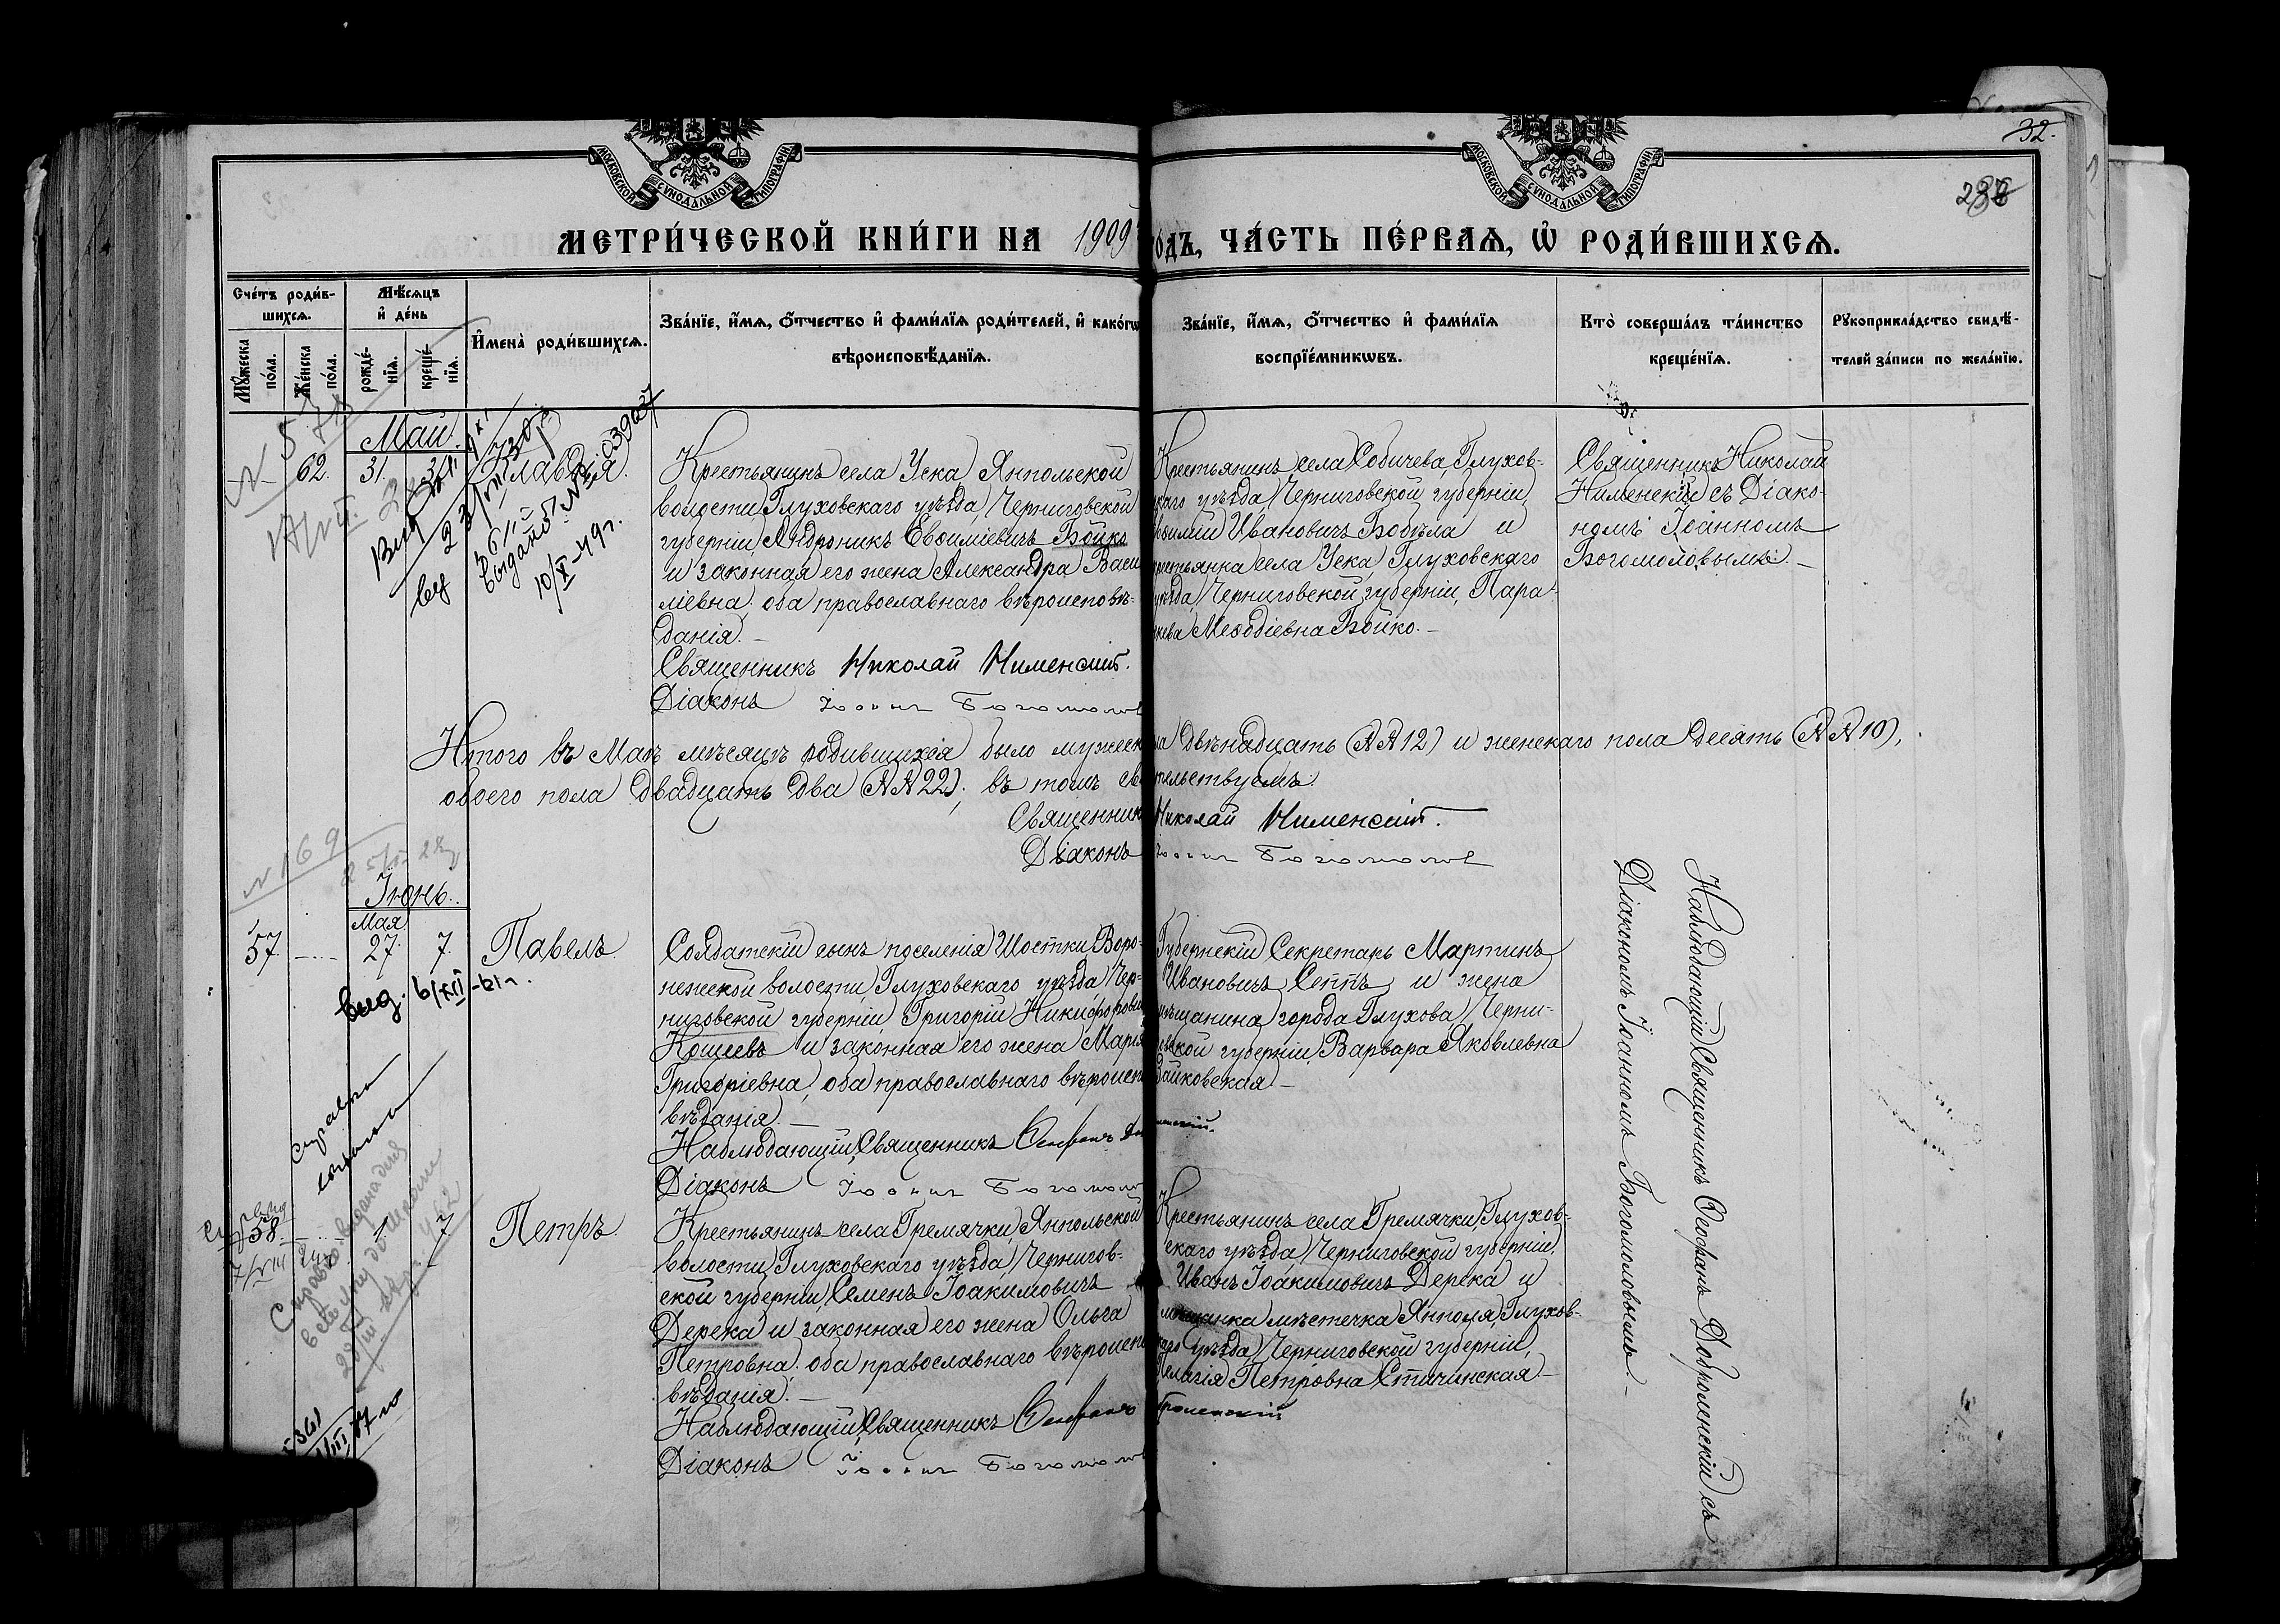 32.
МОСКОВСКОЙ СΥНОДАЛЬНОЙ ТИПОГРАФІИ
МОСКОВСКОЙ СΥНОДАЛЬНОЙ ТИПОГРАФІИ
МЕТРИ́ЧЕСКОЙ КНИ́ГИ НА 1909
ОДЪ, ЧА́СТЬ ПЕ́РВАѦ, Ѡ҆ РОДИ́ВШИХСѦ.
Сче́тъ роди́в-
шихсѧ.
Мꙋ́жеска по́ла.
Же́нска по́ла.
Мѣ́сѧцъ
и҆ де́нь
рожде́-
нїѧ.
креще́-
нїѧ.
И҆мена̀ роди́вшихсѧ.
Зва́нїе, и҆́мѧ, ѻ҆́тчество и҆ фами́лїѧ роди́телей, и҆ како́гѡ
вѣроисповѣ́данїѧ.
Зва́нїе, и҆́мѧ, ѻ҆́тчество и҆ фами́лїѧ
воспрїе́мникѡвъ.
Кто̀ соверша́лъ та́инство
креще́нїѧ.
Рꙋкоприкла́дство свидѣ́-
телей за́писи по жела́нїю.
Май.
62. 31. 31. Клавдія.
выдано
10/X-49 г.
Крестьянинъ села Уска, Янпольской
волости, Глуховскаго уѣзда, Черниговской
губерніи, Андроникъ Евѳиміевичъ Бойко
и законная его жена Александра Васи
ліевна, оба православнаго вѣроисповѣ-
данія.—
Священникъ Николай Нименскій.
Діаконъ Іоаннъ Богомолов
Крестьянинъ села Собичева, Глухов-
скаго уѣзда, Черниговской губерніи,
ѳимій Ивановичъ Бобыла и
крестьянка села Уска, Глуховскаго
уѣзда, Черниговской губерніи, Пара-
кева Меѳодіевна Бойко.—
Священникъ Николай
Нименскій съ Діако-
номъ Іоанномъ
Богомоловымъ.—
Итого въ Маѣ мѣсяцѣ родившихся было мужеск
а двѣнадцать (№№12) и женскаго пола десять (№№10),
обоего пола двадцать два (№№22); въ томъ сви
тельствуемъ:
Священник Николай Нименскій.
Діаконъ Іоаннъ Богомолов
N 169
Іюнь.
Мая
57. 27. 7. Павелъ.
выд. 6/XII-51 г.
Солдатскій сынъ поселенія Шостки, Воро-
нежской волости, Глуховскаго уѣзда, Чер-
ниговской губерніи, Григорій Никифорови
Кощеевъ и законная его жена Марія
Григоріевна, оба православнаго вѣроисп
вѣданія.—
Наблюдающій Священникъ Ѳеофанъ Доб
Діаконъ Іоаннъ Богомолов
Губернскій Секретарь Мартинъ
Ивановичъ Сеппъ и жена
мѣщанина города Глухова, Черни-
говской губерніи, Варвара Яковлевна
Зайковская.—
Наблюдающій Священникъ Ѳеофанъ Доброменскій съ
Діакономъ Іоанномъ Богомоловымъ.—
Справка
58. 1. 7. Петръ.
Крестьянинъ села Гремячки, Янпольской
волости, Глуховскаго уѣзда, Чернигов-
ской губерніи, Семенъ Іоакимовичъ
Дерека и законная его жена Ольга
Петровна, оба православнаго вѣроиспо
вѣданія.—
Наблюдающій Священникъ Ѳеофанъ
Діаконъ Іоаннъ Богомолов
Крестьянинъ села Гремячки, Глухов-
скаго уѣзда, Черниговской губерніи,
Иванъ Іоакимовичъ Дерека и
мѣщанка мѣстечка Янполя, Глухов-
скаго уѣзда, Черниговской губерніи,
Пелагія Петровна Стичинская.—
361